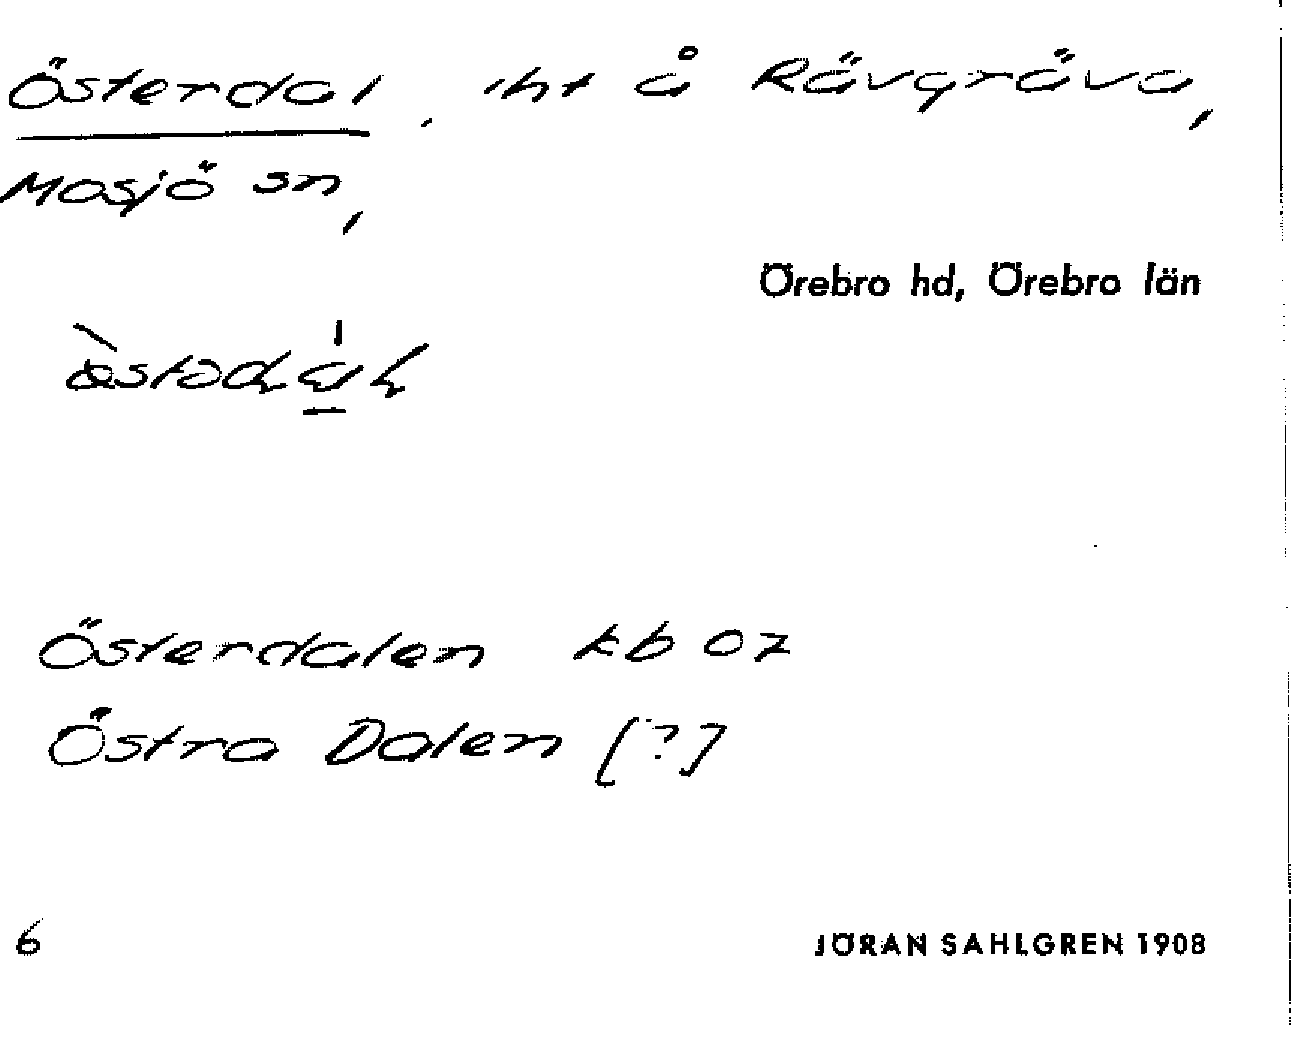 Österdal, iht å Rävgräva,
Mosjö sn,
Örebro hd, Örebro län
Österdalen kb 07
Östra Dalen [?]
6
JÖRAN SAHLGREN 1908